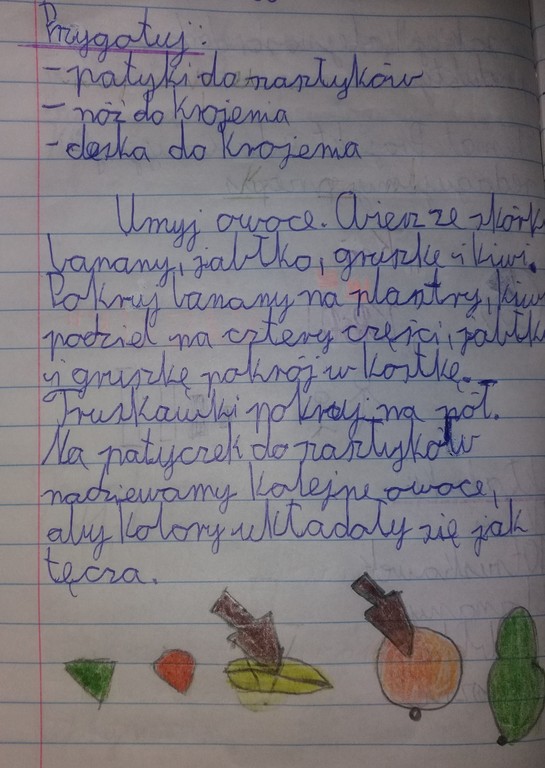 Przygotuj:
- patyki do szaszłyków
- nóż do krojenia
- deska do krojenia
Umyj owoce. Obierz ze skórk
banany, jabłko, gruszkę i kiwi.
Pokruj banany na plastry, kiwi
podziel na cztery części, jabłk
i gruszkę pokrój w kostkę.
Truskawki pokroj na pół.
Na patyczek do szaszłyków
nadziewamy kolejne owoce,
aby kolory układały się jak
tęcza.